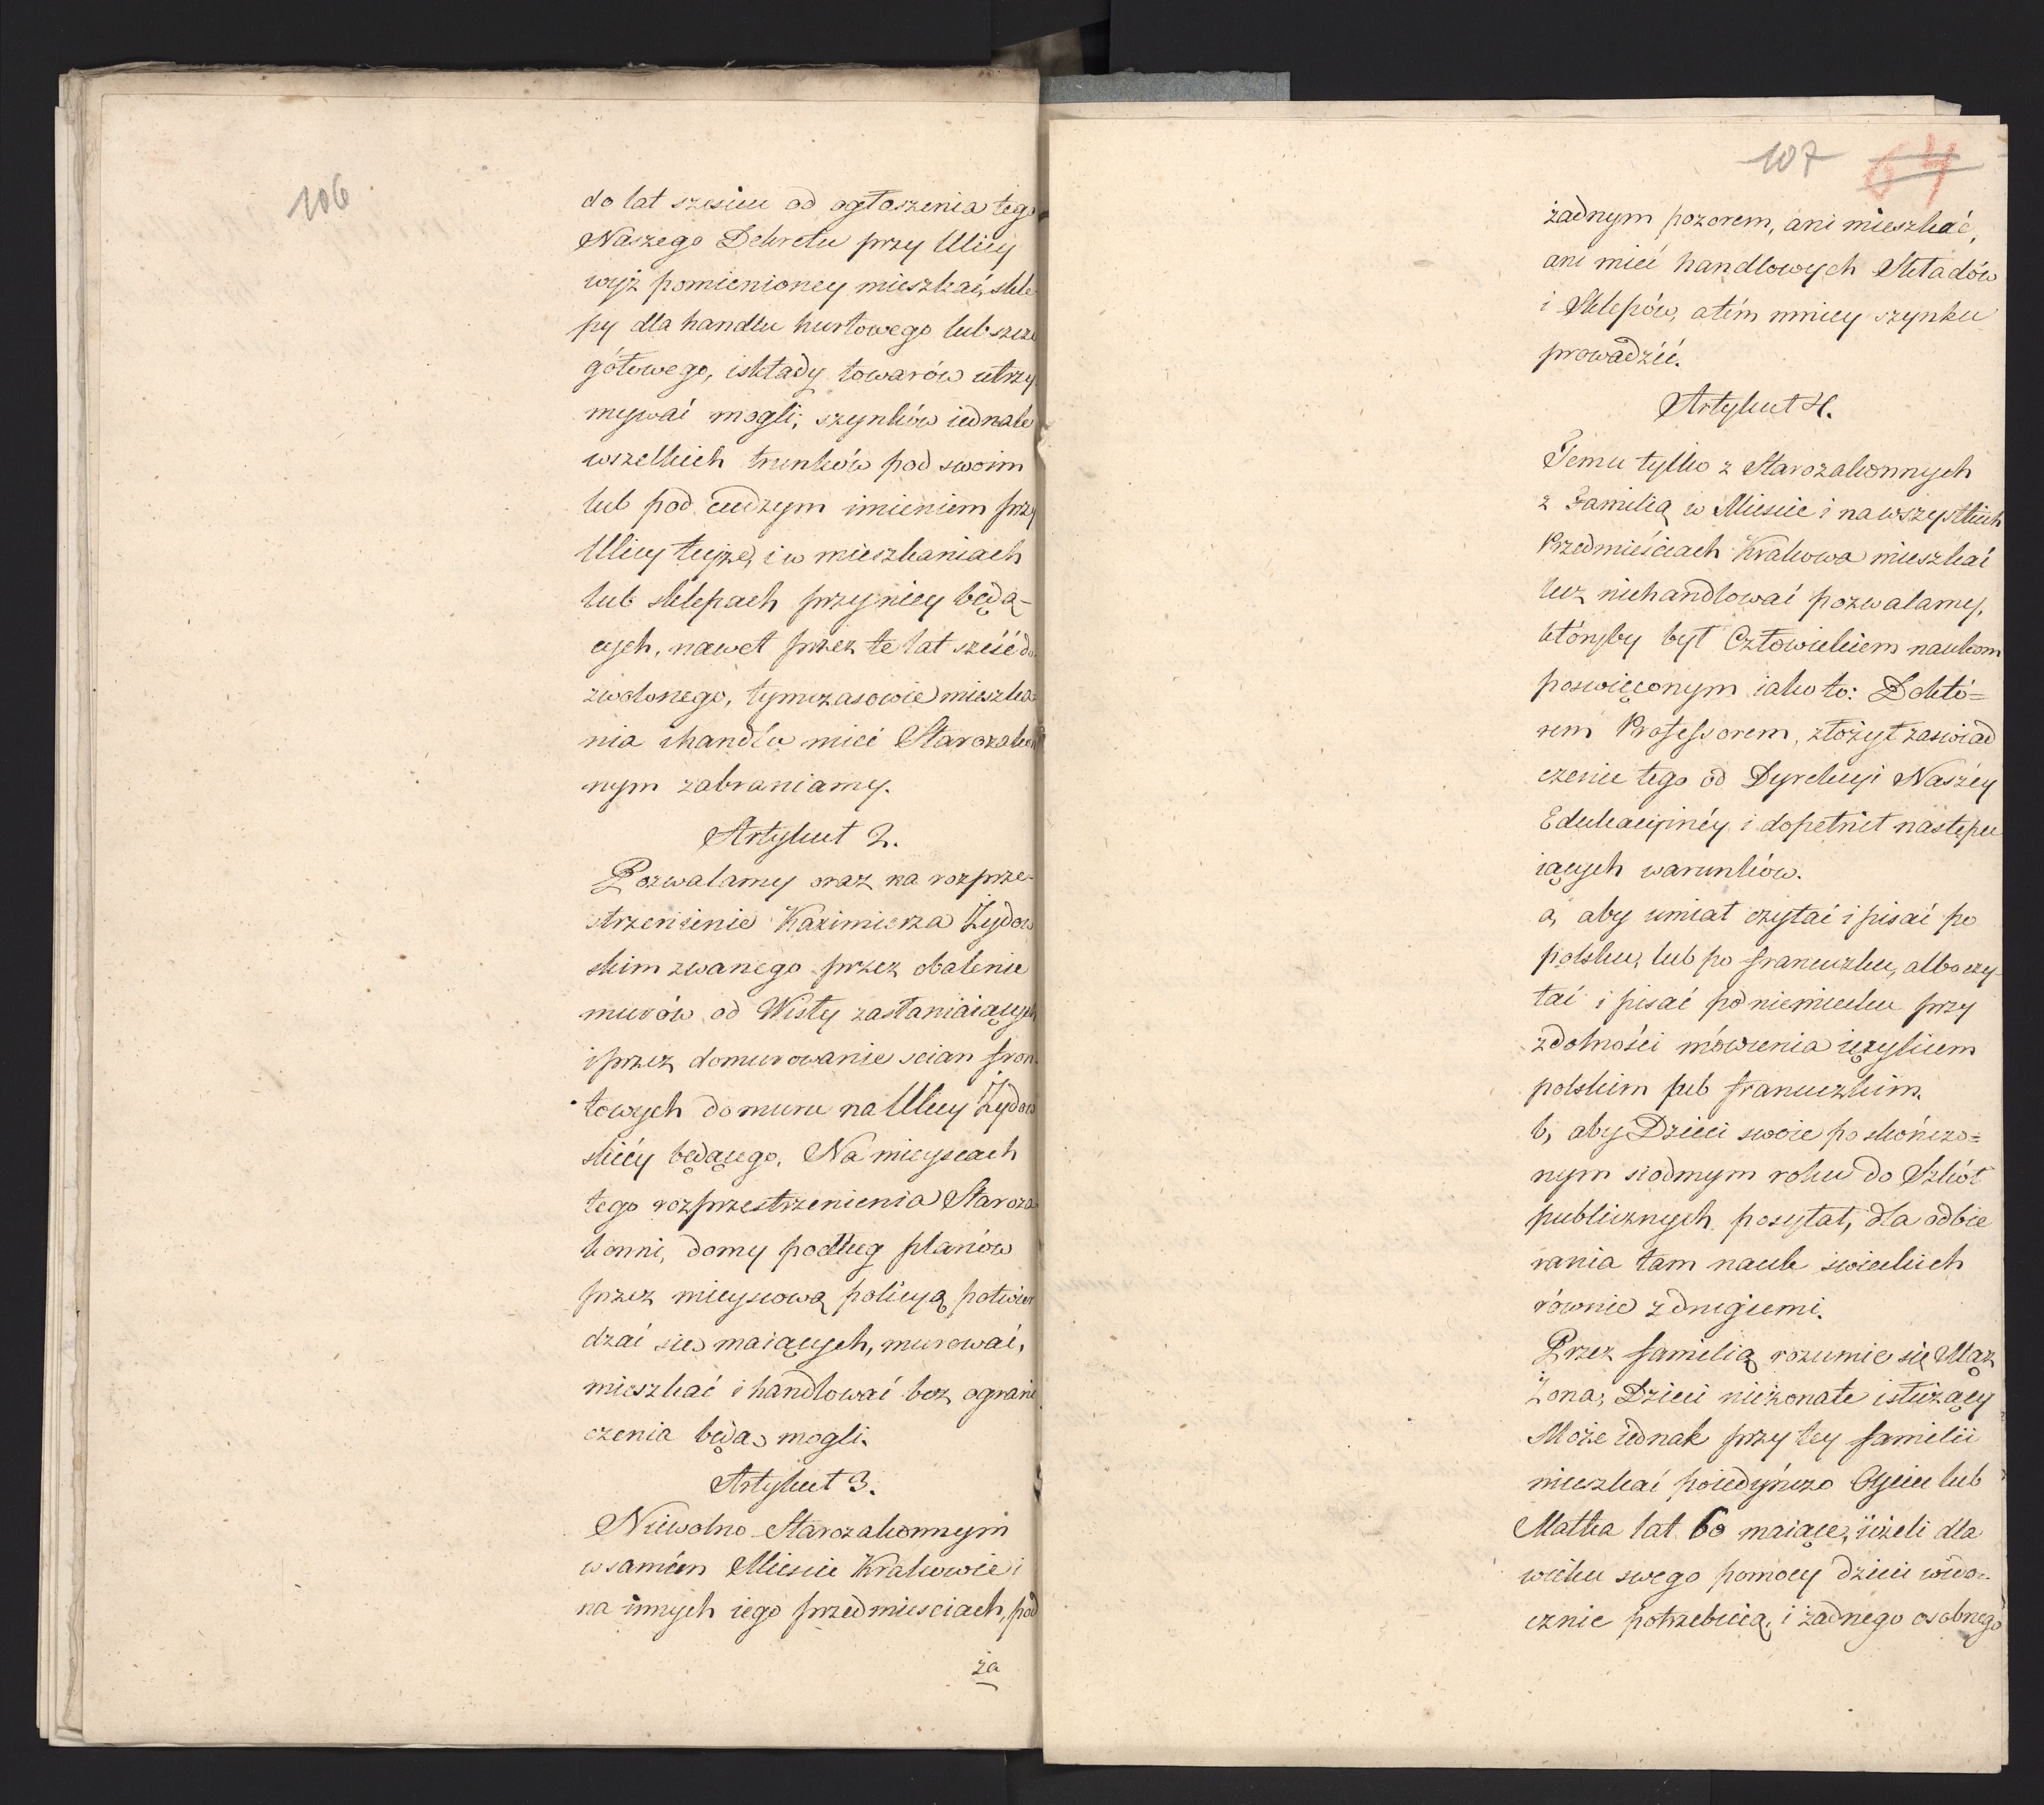 106
do lat szesciu od ogłoszenia tego
Naszego Dekretu przy Ulicy
wyż pomienioney mieszkać, skle
py dla handlu hurtowego lub szcze
gółowego, i składy towarów utrzy
mywać mogli; szynków iednak
wszelkich trunków pod swoim
lub pod cudzym imieniem przy
Ulicy teyże, i w mieszkaniach
lub sklepach przyniey będą-
cych, nawet przez te lat sześć do
zwolonego, tymczasowie mieszka
nia i handlu mieć Starozakon
nym zabraniamy.
Artykuł 2.
Pozwalamy oraz na rozprze-
strzenienie Kazimierza Żydow
skim zwanego przez obalenie
murów od Wisły zasłaniaiących
i przez domurowanie scian fron
towych do muru na Ulicy Żydow
skiéy będącego. Na mieyscach
tego rozprzestrzenienia Staroza
konni, domy podług planów
przez mieyscową policyą potwier
dzać się maiących, murować,
mieszkać i handlować bez ograni
czenia będą mogli.
Artykuł 3.
Niewolno Starozakonnym
w samém Miescie Krakowie i
na innych iego przedmiesciach, pod
ża
107 64
żadnym pozorem, ani mieszkać,
ani mieć handlowych Składów
i Sklepów, a tém mniey szynku
prowadzić.
Artykuł 4.
Temu tylko z Starozakonnych
z Familią w Miescie i na wszystkich
Przedmieściach Krakowa mieszkać
lecz niehandlować pozwalamy,
któryby był Człowiekiem naukom
poswięconym iako to: Doktó=
rem Professorem, złożył zaswiad
czenie tego od Dyrekcyi Naszéy
Edukacyinéy i dopełnił następu
iących warunków.
a, aby umiał czytać i pisać po
polsku, lub po francuzku, albo czy-
tać i pisać po niemiecku przy
zdolności mówienia ięzykiem
polskim lub francuzkim.
b, aby Dzieci swoie po skończo=
nym siodmym roku do Szkół
publicznych posyłał, dla odbie
rania tam nauk swieckich
równie z drugiemi.
Przez familią rozumie się Mąż
Żona, Dzieci nieżonate i służący
Może iednak przy tey familii
mieszkać poiedyńczo Oyciec lub
Matka lat 60 maiące, ieżeli dla
wieku swego pomocy dzieci wido-
cznie potrzebuią, i żadnego osobnego